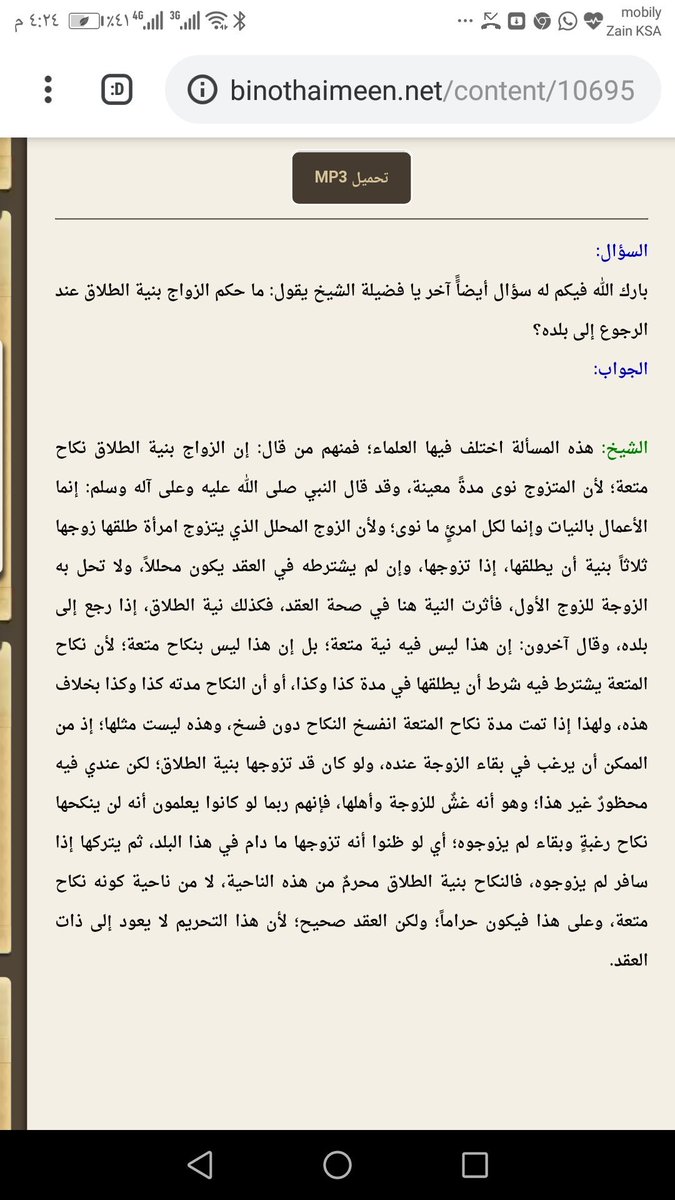 mobily
Zain KSA
٤:٢٤ م
٪٤١
4G
3G
:D
binothaimeen.net/content/10695
تحميل MP3
السؤال:
بارك الله فيكم له سؤال أيضاًً آخر يا فضيلة الشيخ يقول: ما حكم الزواج بنية الطلاق عند
الرجوع إلى بلده؟
الجواب:
الشيخ: هذه المسألة اختلف فيها العلماء؛ فمنهم من قال: إن الزواج بنية الطلاق نكاح
متعة؛ لأن المتزوج نوى مدةً معينة، وقد قال النبي صلى الله عليه وعلى آله وسلم: إنما
الأعمال بالنيات وإنما لكل امرئٍ ما نوى؛ ولأن الزوج المحلل الذي يتزوج امرأة طلقها زوجها
ثلاثاً بنية أن يطلقها، إذا تزوجها، وإن لم يشترطه في العقد يكون محللاً، ولا تحل به
الزوجة للزوج الأول، فأثرت النية هنا في صحة العقد، فكذلك نية الطلاق، إذا رجع إلى
بلده، وقال آخرون: إن هذا ليس فيه نية متعة؛ بل إن هذا ليس بنكاح متعة؛ لأن نكاح
المتعة يشترط فيه شرط أن يطلقها في مدة كذا وكذا، أو أن النكاح مدته كذا وكذا بخلاف
هذه، ولهذا إذا تمت مدة نكاح المتعة انفسخ النكاح دون فسخ، وهذه ليست مثلها؛ إذ من
الممكن أن يرغب في بقاء الزوجة عنده، ولو كان قد تزوجها بنية الطلاق؛ لكن عندي فيه
محظورٌ غير هذا؛ وهو أنه غشٌ للزوجة وأهلها، فإنهم ربما لو كانوا يعلمون أنه لن ينكحها
نكاح رغبةٍ وبقاء لم يزوجوه؛ أي لو ظنوا أنه تزوجها ما دام في هذا البلد، ثم يتركها إذا
سافر لم يزوجوه، فالنكاح بنية الطلاق محرمٌ من هذه الناحية، لا من ناحية كونه نكاح
متعة، وعلى هذا فيكون حراماً؛ ولكن العقد صحيح؛ لأن هذا التحريم لا يعود إلى ذات
العقد.